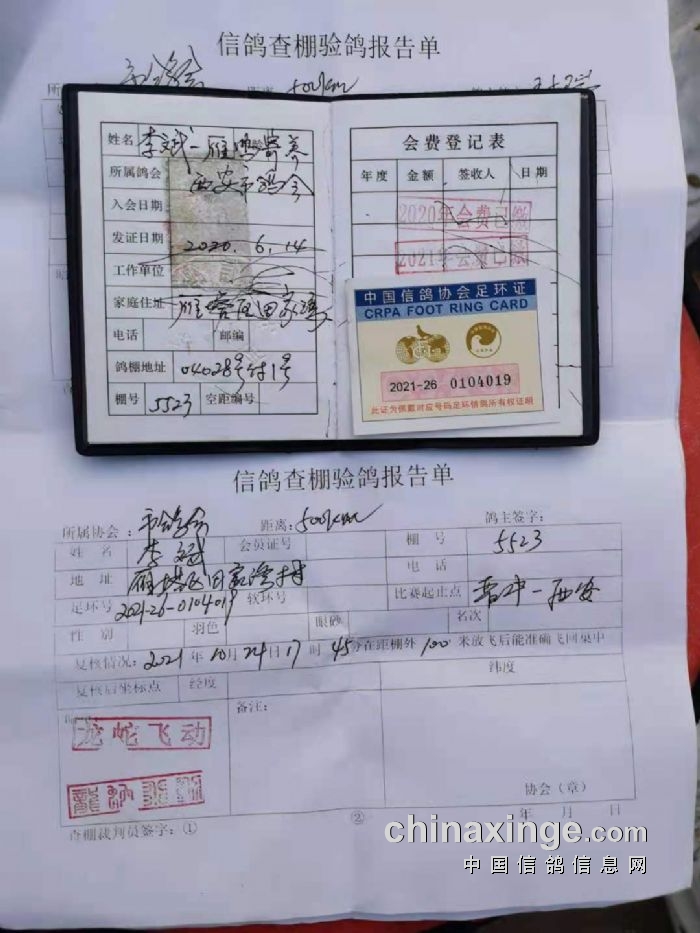 信鸽查棚验鸽报告单
距离: 500km
姓名 李斌-雁鸣寄养
所属鸽会 西安市鸽会
入会日期
发证日期 2020.6.14
工作单位
家庭住址
电话 邮编
鸽棚地址 04028号付1号
棚号 5523 空距编号
会费登记表
年度 金额 签收人 日期
2020年会费已缴
2021年会费已缴
中国信鸽协会足环证
CRPA FOOT RING CARD
2021-26 0104019
此证为佩戴对应号码足环信鸽所有权证明
信鸽查棚验鸽报告单
所属协会: 市鸽会 距离: 500km 鸽主签字:
姓名 李斌 会员证号 棚号 5523
地址 雁塔区田家湾村 电话
足环号 2021-26-0104019 软环号 比赛起止点 晋中-西安
性别 羽色 眼砂 名次
复核情况: 2021年10月24日17时45分在距棚外100米放飞后能准确飞回巢中
复核后坐标点 经度 纬度
备注:
龙蛇飞动
协会(章)
年 月 日
查棚裁判员签字: ① ②
chinaxinge.com
中国信鸽信息网